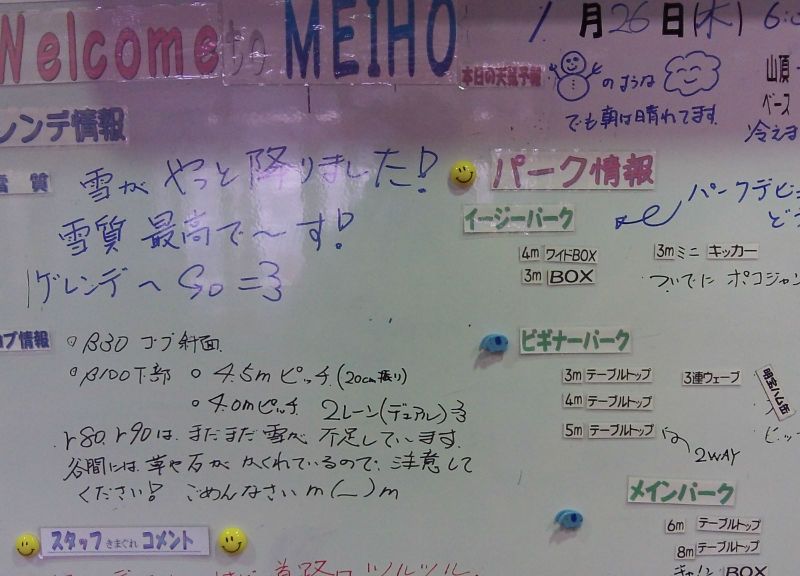 Welcome to MEIHO
1月26日(木) 6:0
本日の天気予報 のような
山頂
でも朝は晴れてます
ベース
冷えま
レンデ情報
雪質
雪が やっと 降りました!
雪質 最高で〜す!
ゲレンデへ GO =3
パーク情報
パークデビ
ど
イージーパーク
4m ワイドBOX
3m ミニ キッカー
3m BOX
ついでに ポコジャン
コブ情報
○β30 コブ斜面
○β100下部 ○ 4.5mピッチ (20cm振り)
○ 4.0mピッチ 2レーン(デュアル)
r80、r90は、まだまだ雪が 不足しています。
谷間には、草や石が かくれているので、注意して
ください! ごめんなさい m(_)m
ビギナーパーク
3m テーブルトップ
3連ウェーブ
4m テーブルトップ
5m テーブルトップ
2WAY
メインパーク
6m テーブルトップ
8m テーブルトップ
キャノン BOX
スタッフ きまぐれ コメント
道路はツルツル。